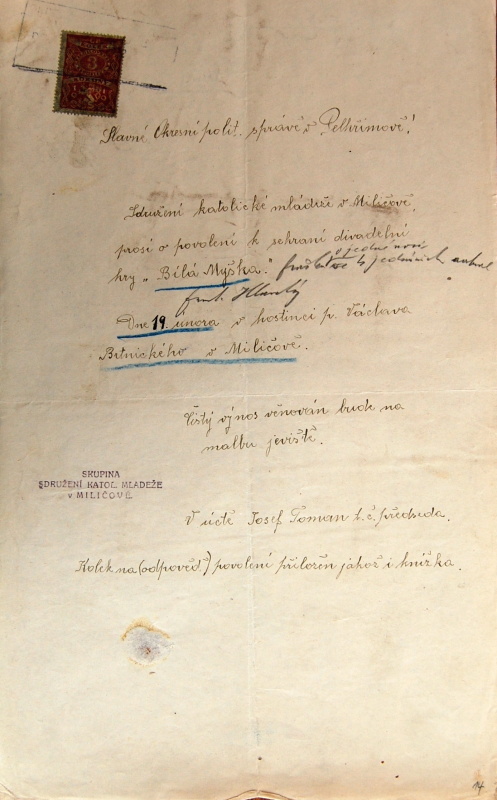 Slavné Okresní polit. správě v Pelhřimově!
Sdružení katolické mládeže v Miličově
prosí o povolení k sehraní divadelní
hry „Bílá Myška."
Dne 19. února v hostinci p. Václava
Bitnického v Miličově.
Čistý výnos věnován bude na
malbu jeviště.
SKUPINA
SDRUŽENÍ KATOL. MLÁDEŽE
v MILIČOVĚ
V úctě Josef Toman t. č. předseda.
Kolek na (odpověď) povolení přiložen jakož i knížka.
14